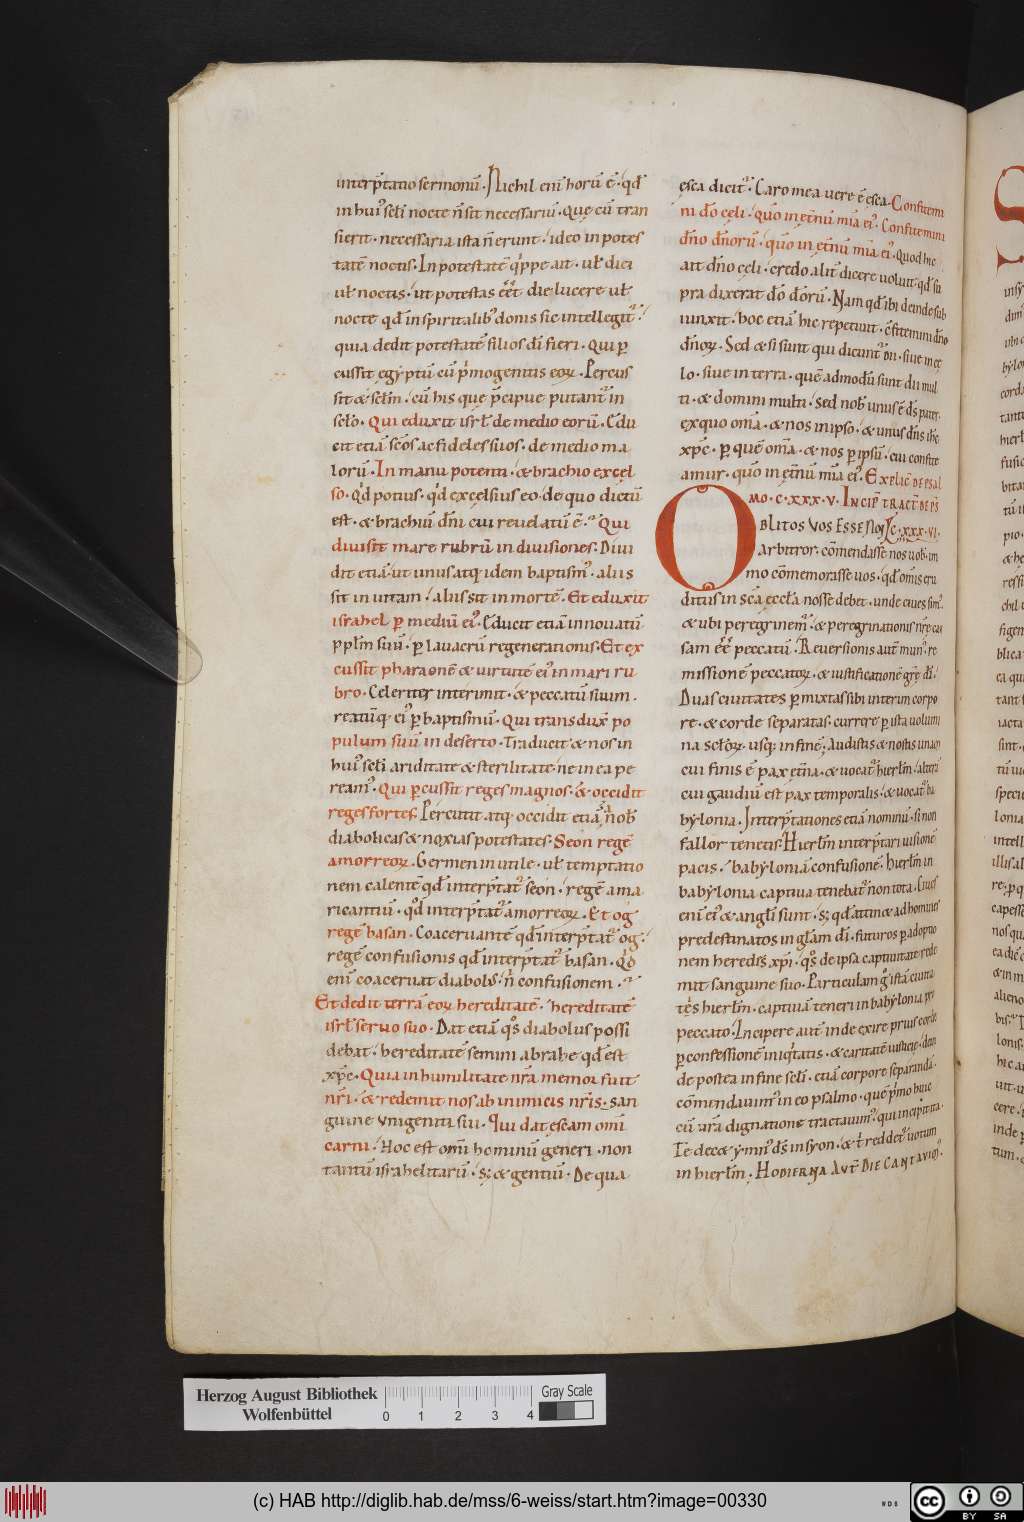 interp̄tatio sermonū. Nichil eni horū ē. qđ
in hui' scl̄i nocte n̄ sit necessariū. Quę cū tran
sierit. necessaria ista n̄ erunt. ideo in potes
tatē noctis. In potestatē q'ppe ait. ut̄ diei
ut̄ noctis. ut potestas eēt die lucere ut̄
nocte qđ in spiritalib' donis sic intellegit̄.
quia dedit potestatē filios dī fieri. Qui p̱
cussit egyptū cū p'mogenitis eoꝝ. Percus
sit & sclm̄. cū his que p̄cipue putant̄ in
sclo. Qui eduxit isrl̄ de medio eorū. Edu
cit etiā scōs ac fideles suos. de medio ma
lorū. In manu potenti. & brachio excel
so. Qđ potius. qđ excelsius eo. de quo dictū
est. & brachiū dn̄i cui reuelatū ē. Qui
diuisit mare rubrū in diuisiones. Diui
dit etiā ut unus atq; idem baptism'. aliis
sit in uitam. aliis sit in mortē. Et eduxit
israhel p̱ mediū ei'. Educit etiā innouatū
pplm̄ suū. p̱ lauacrū regenerationis. Et ex
cussit pharaonē & uirtutē ei' in mari ru
bro. Celeriter interimit. & peccatū suum.
reatūq; ei' p̱ baptismū. Qui transdux̄ po
pulum suū in deserto. Traducit & nos in
hui' scl̄i ariditate & sterilitate. ne in ea pe
ream'. Qui p̱cussit reges magnos. & occidit
reges fortes. Percutit atq; occidit etiā a nob'
diabolicas & noxias potestates. Seon regē
amorreoꝝ. Germen inutile. ut̄ temptatio
nem calentē qđ interp̄tat̄ seon. regē ama
ricantiū. qđ interp̄tat̄ amorreoꝝ. Et og
regē basan. Coaceruantē qđ interp̄tat̄ og.
regē confusionis qđ interp̄tat̄ basan. Qđ
eni coaceruat diabols. n̄ confusionem.
Et dedit terrā eoꝝ hereditatē. hereditatē
isrl̄ seruo suo. Dat etiā q°s diabolus possi
debat. hereditatē semini abrahe qđ est
xp̄c. Quia in humilitate nr̄a memor fuit
nr̄i. & redemit nos ab inimicis nr̄is. san
guine unigeniti sui. Qui dat escam omī
carni. Hoc est omī hominū generi. non
tantū israhelitarū. sꝫ & gentiū. De qua
esca dicit̄. Caro mea uere ē esca. Confitemi
ni dō cęli. qm̄ in et̄nū mīa ei'. Confitemini
dn̄o dn̄orū. qm̄ in et̄nū mīa ei'. Quod hic
ait dn̄o cęli. credo alit̄ dicere uoluit. qđ su
pra dixerat dō dōrū. Nam qđ ibi deinde sub
iunxit. hoc etiā hic repetiuit. cf̄itemini dn̄o
dn̄oꝝ. Sed & si sunt qui dicunt̄ dii. siue in cę
lo. siue in terra. quē admodū sunt dii mul
ti. & domini multi. sed nob' unus ē ds̄ pater.
ex quo om̄a. & nos in ipso. & unus dn̄s ih̄c
xp̄c. p̱ quē om̄a. & nos p̱ ipsū. cui confite
amur. qm̄ in et̄nū mīa ei'. Explic̄ de psal
mo. c.xxx.v. Incip̄ tract̄. de ps̄
Oblitos uos esse nō c.xxx.vi.
arbitror. cōmendasse nos uob'. im
mo cōmemorasse uos. qđ omīs eru
ditus in scā eccl̄a nosse debet. unde ciues sim'.
& ubi peregrinem'. & peregrinationis nr̄ę cau
sam eēt peccatū. Reuersionis aut̄ mun' re
missionē peccatoꝝ. & iustificationē gr̄ę dī.
Duas ciuitates p̱mixtas sibi interim corpo
re. & corde separatas. currere p̱ ista uolumi
na scl̄oꝝ. usq; in finē. Audistis & nostis unam
cui finis ē pax et̄na. & uocat̄ hierlm̄. alterā
cui gaudiū est pax temporalis. & uocat̄ ba
bylonia. Interp̄tationes etiā nominū. si non
fallor tenetis. Hierlm̄ interp̄tari uisionē
pacis. babyloniā confusionē. Hierlm̄ in
babylonia captiua tenebat̄ non tota. Ciues
eni ei' & angl̄i sunt. sꝫ qđ attin& ad homines
predestinatos in gl̄am dī. futuros p̱ adoptio
nem hereds̄ xp̄i. q°s de ipsa captiuitate rede
mit sanguine suo. Particulam g° istā ciuita
tes hierlm̄. captiuā teneri in babylonia pro
peccato. Incipere aut̄ inde exire prius corde
p̱ confessionē iniq'tatis. & caritatē iusticię. dein
de postea in fine scl̄i. etiā corpore separandā.
cōmendauim' in eo psalmo. quē p'mo huic
cū ur̄a dignatione tractauim'. qui incipit ita.
Te dec& ymn' ds̄ in syon. & t' reddet̄ uotum
in hierlm̄. Hodierna aut̄ die cantauim'.
Herzog August Bibliothek
Wolfenbüttel
0 1 2 3 4
Gray Scale
(c) HAB http://diglib.hab.de/mss/6-weiss/start.htm?image=00330
cc BY SA